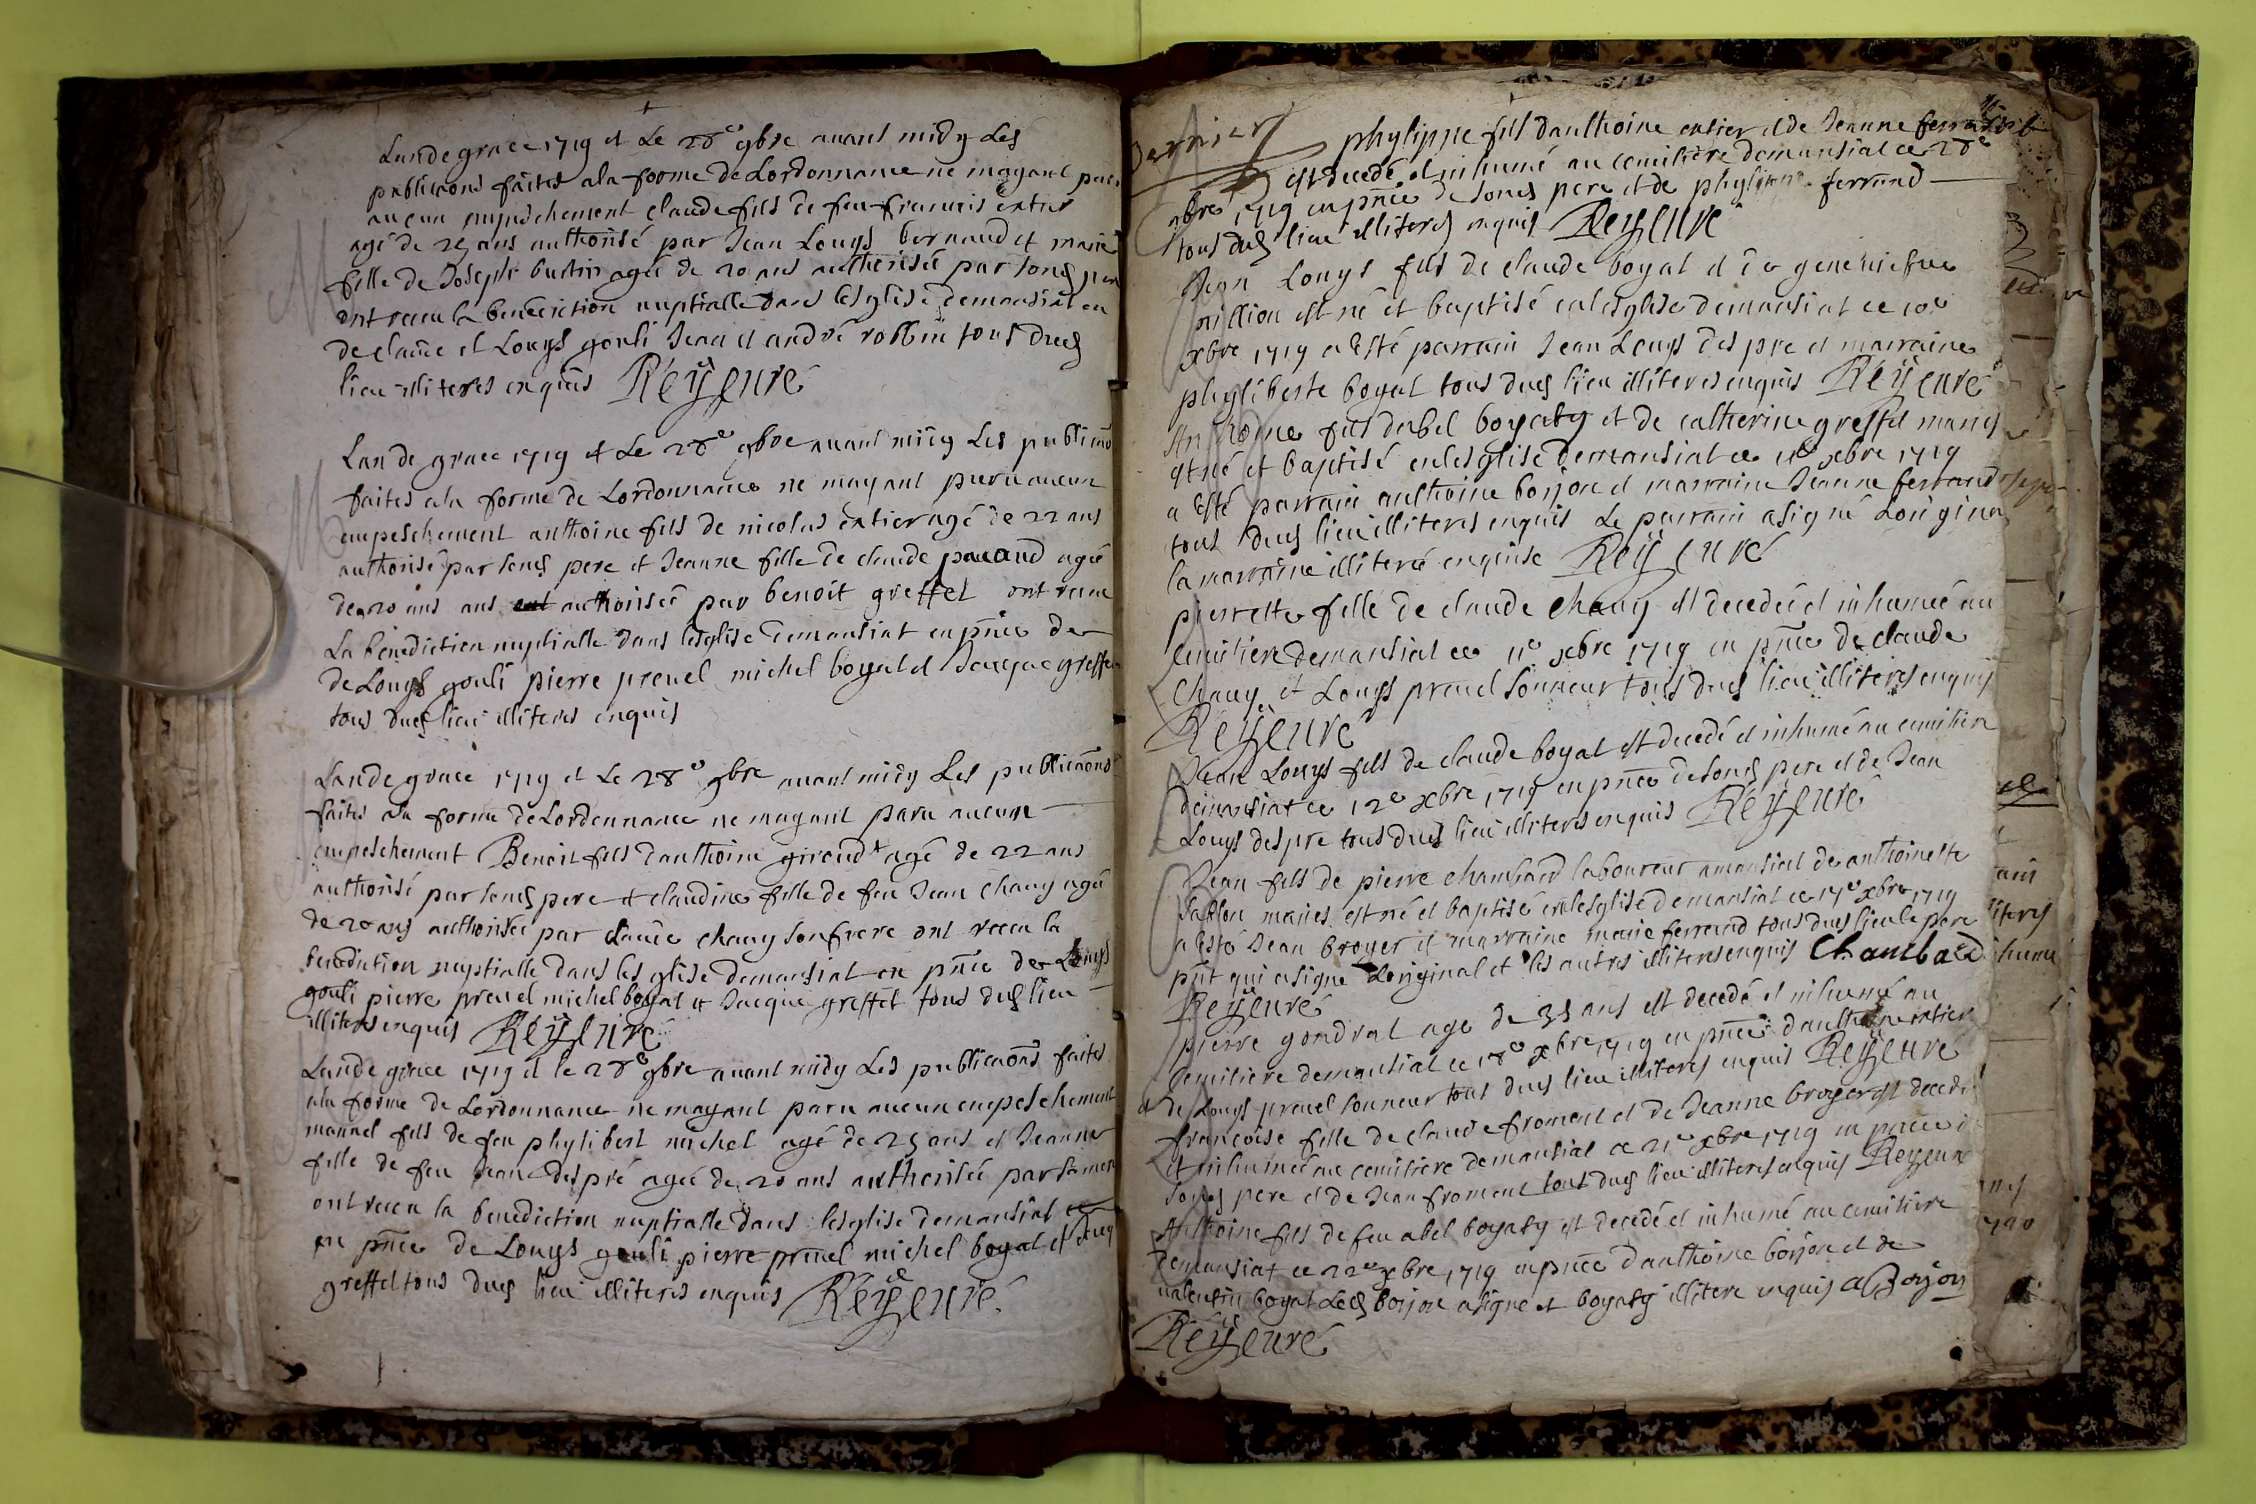 Lan de grace 1719 et Le 28e 9bre avant midy Les
publicaons faites a la forme de Lordonnance ne mayant paru
aucun empeschement claude fils de feu francois entier
agé de 25 ans authorisé par Jean Louys bernaud et marie
fille de Joseph buchin agée de 20 ans authorisée par sond pere
ont receu la benediction nuptialle dans lesglise demansiat en
de claude et Louys gouli Jean et andré robbin tous dud
lieu illiteres enquis Réÿ curé
Lan de grace 1719 et Le 28e 9bre avant midy Les publicaons
faites a la forme de Lordonnance ne mayant paru aucun
empeschement anthoine fils de nicolas entier agé de 22 ans
authorisé par sond pere et Jeanne fille de claude pacaud agée
de 20 ans ans authorisée par benoit greffet ont receu
La benediction nuptialle dans lesglise demansiat en pnce de
de Louys gouli pierre prevel michel boyat et Jacque greffet
tous dud lieu illiteres enquis
Lan de grace 1719 et Le 28e 9bre avant midy Les publicaons
faites a la forme de Lordonnance ne mayant paru aucun
empeschement Benoit fils danthoine giroud agé de 22 ans
authorisé par sond pere et claudine fille de feu Jean chavy agée
de 20 ans authorisée par claude chavy son frere ont receu la
benediction nuptialle dans lesglise demansiat en pnce de Louys
gouli pierre prevel michel boyat et Jacque greffet tous dud lieu
illiteres enquis Réÿ curé
Lan de grace 1719 et le 28e 9bre avant midy Les publicaons faites
a la forme de Lordonnance ne mayant paru aucun empeschement
manuel fils de feu phylibert michel agé de 25 ans et Jeanne
fille de feu Jean despré agée de 20 ans authorisée par sa mere
ont receu la benediction nuptialle dans lesglise demansiat
en pnce de Louys gouli pierre prevel michel boyat et Jacq
greffet tous dud lieu illiteres enquis Réÿ curé
Dernier phylippe fils danthoine entier et de Jeanne ferrand
est decedé et inhumé au cemitiere demansiat ce 28e
9bre 1719 en pnce de sond pere et de phylippe ferrand
tous dud lieu illiteres enquis Reÿ curé
Jean Louys fils de claude boyat et de geneviefve
million est né et baptisé en lesglise demansiat ce 10e
xbre 1719 a esté parrain Jean Louys despre et marraine
phyliberte boyat tous dud lieu illiteres enquis Réÿ curé
Anthoine fils dabel boyaty et de catherine greffet mariés
est né et baptisé en lesglise demansiat ce 11e xbre 1719
a esté parrain anthoine borjon et marraine Jeanne ferrand
tous dud lieu illiteres enquis Le parrain a signé Loriginal
la marraine illiteré enquise Reÿ curé
pierrette fille de claude chavy est decedée et inhumée au
cemitiere demansiat ce 11e xbre 1719 en pnce de claude
chavy et Louys prevel sonneur tous dud lieu illiteres enquis
Reÿ curé
Jean Louys fils de claude boyat est decedé et inhumé au cemitiere
demansiat ce 12e xbre 1719 en pnce de sond pere et de Jean
Louys despre tous dud lieu illiteres enquis Reÿ curé
Jean fils de pierre chambard laboureur a mansiat et de anthoinette
mariés est né et baptisé en lesglise demansiat ce 17e xbre 1719
a esté Jean broyer et marraine marie ferrand tous dud lieu le pere
pnt qui a signé Loriginal et les autres illiteres enquis Chambard
Reÿ curé
pierre gondrat agé de 35 ans est decedé et inhumé au
cemitiere demansiat ce 18e xbre 1719 en pnce danthoine entier
et de Louys prevel sonneur tous dud lieu illiteres enquis Reÿ curé
francoise fille de claude froment et de Jeanne broyer est decedée
et inhumée au cemitiere demansiat ce 21e xbre 1719 en pnce de
sond pere et de Jean froment tous dud lieu illiteres enquis Reÿ curé
Anthoine fils de feu abel boyaty est decedé et inhumé au cemitiere
demansiat ce 22e xbre 1719 en pnce danthoine borjon et de
valentin boyat Led borjon a signé et boyaty illitere enquis A Borjon
Réÿ curé